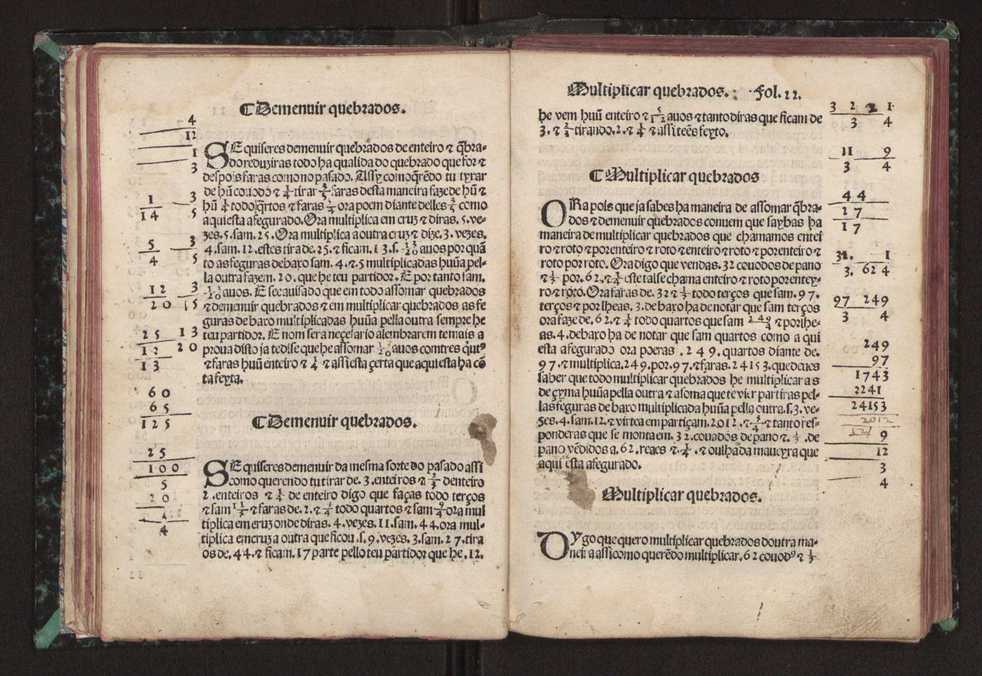 Demenuir quebrados.
4
12
1
3
1 3
14 5
5 3
4 5
12 3
20 15
25 13
12 20
13
60
65
125
25
100
5
20
4
4
SE quiseres demenuir quebrados de enteiro ⁊ q̃bra-
do reduziras todo ha qualida do quebrado que for ⁊
despois faras como no pasado. Assy como q̃redo tu tyrar
de hũ couodo ⁊ ¼ tirar ⅗ faras desta maneira faze de hũ ⁊
hũ ¼ todo q̃rtos ⁊ faras ora poem diante delles ⅗ como
aqui esta afegurado. Ora multiplica em cruz ⁊ diras. 5. ve-
zes. 5. sam. 25. Ora multiplica a outra cruz ⁊ dize. 3. vezes.
4. sam. 12. estes tira de. 25. ⁊ ficam. 13. s. avos por quã
to as feguras debaxo sam. 4. ⁊ 5 multiplicadas huũa pel-
la outra fazem. 20. que he teu partidor. E por tanto sam.
avos. E se cauisado que em todo assomar quebrados
⁊ demenuir quebrados ⁊ em multiplicar quebrados as fe
guras de baxo multiplicadas huũa pella outra sempre he
teu partidor. E nom sera necesario alembrarem te mais a
prova disto ja te disse que he assomar avos com tres
⁊ faras huũ enteiro ⁊ ¼ ⁊ assi esta çerta que aqui esta ha cõ
ta feyta.
Demenuir quebrados.
SE quiseres demenuir da mesma sorte do pasado assi
como querendo tu tirar de. 3. enteiros ⁊ ⅔ denteiro
2. enteiros ⁊ ¼ de enteiro digo que faças todo terços
⁊ sam 11/3 ⁊ faras de. 2. ⁊ ¼ todo quartos ⁊ sam 9/4 ora mul
tiplica em cruz onde diras. 4. vezes. 11. sam. 44. ora mul-
tiplica em cruz a outra que ficou .s. 9. vezes. 3. sam. 27. tira
os de. 44. ⁊ ficam. 17 parte pello teu partidor que he. 12.
Multiplicar quebrados. Fol. 12.
he vem huũ enteiro ⁊ 5/12 avos ⁊ tanto diras que ficam de
3. ⁊ ⅔ tirando. 2. ⁊ ¼ ⁊ assi tẽes feyto.
Multiplicar quebrados
ORa pois que ja sabes ha maneira de assomar q̃bra-
dos ⁊ demenuir quebrados conuem que saybas ha
maneira de multiplicar quebrados que chamamos entei
ro ⁊ roto ⁊ por enteiro ⁊ roto ⁊ enteiro ⁊ roto ⁊ por enteiro ⁊
roto por roto. Ora digo que vendas. 32 couodos de pano
⁊ ⅓ por. 62. ⁊ ¼ este tal se chama enteiro ⁊ roto por entey-
ro ⁊ roto. Ora faras de. 32 ⁊ ⅓ todo terços que sam. 97.
terços ⁊ por lheas. 3. de baxo ha denotar que sam terços
ora faze de. 62. ⁊ ¼ todo quartos que sam 249/4 ⁊ por lhe-
as. 4. debaxo ha de notar que sam quartos como a qui
esta afegurado ora poeras . 249. quartos diante de.
97 ⁊ multiplica. 249. por. 97. ⁊ faras. 24153. que deues
saber que todo multiplicar quebrados he multiplicar as
de çyma huũa pella outra ⁊ a soma que te vier partiras pel-
las feguras de baxo multiplicada huũa pella outra. s. 3. ve-
zes. 4. sam. 12. ⁊ virtea em partiçam. 2012. ⁊ ¾ ⁊ tanto res-
ponderas que se monta em. 32. couados de pano ⁊. ⅓. de
pano vẽdidos a. 62. reaes ⁊ .¼. ⁊ oulha da maneyra que
aqui esta afegurado.
Multiplicar quebrados.
DYgo que quero multiplicar quebrados doutra ma-
neira assi como querẽdo multiplicar. 62 couodos ⁊ ⅓
3 2 2 1
3 4
11 9
3 4
44
27
17
32. 1
3. 62 4
97 249
3 4
249
97
1743
2241
24153
2012
9
12
3
4